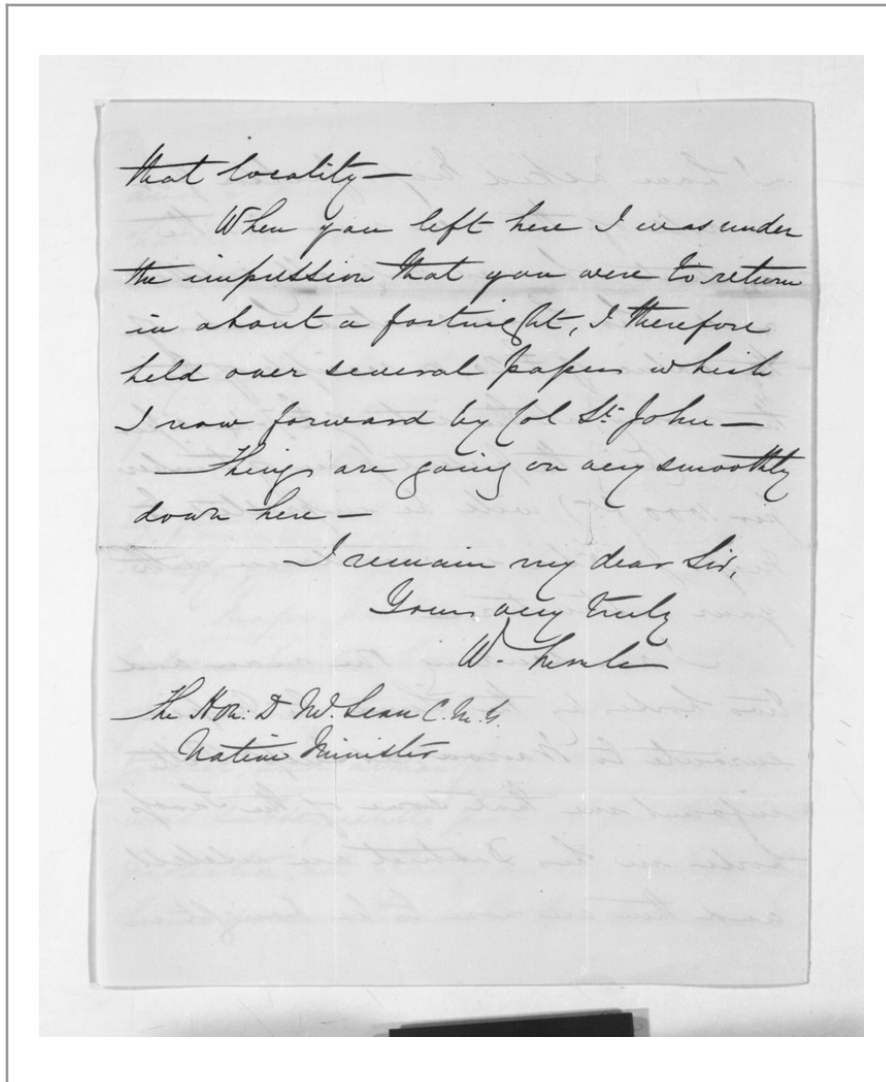 that locality —
When you left here I was under
the impression that you were to return
in about a fortnight, I therefore
held over several papers which
I now forward by Col St. John —
Things are going on very smoothly
down here —
I remain my dear Sir,
Yours very truly
W.
The Hon: D McLean C.M.G.
Native Minister